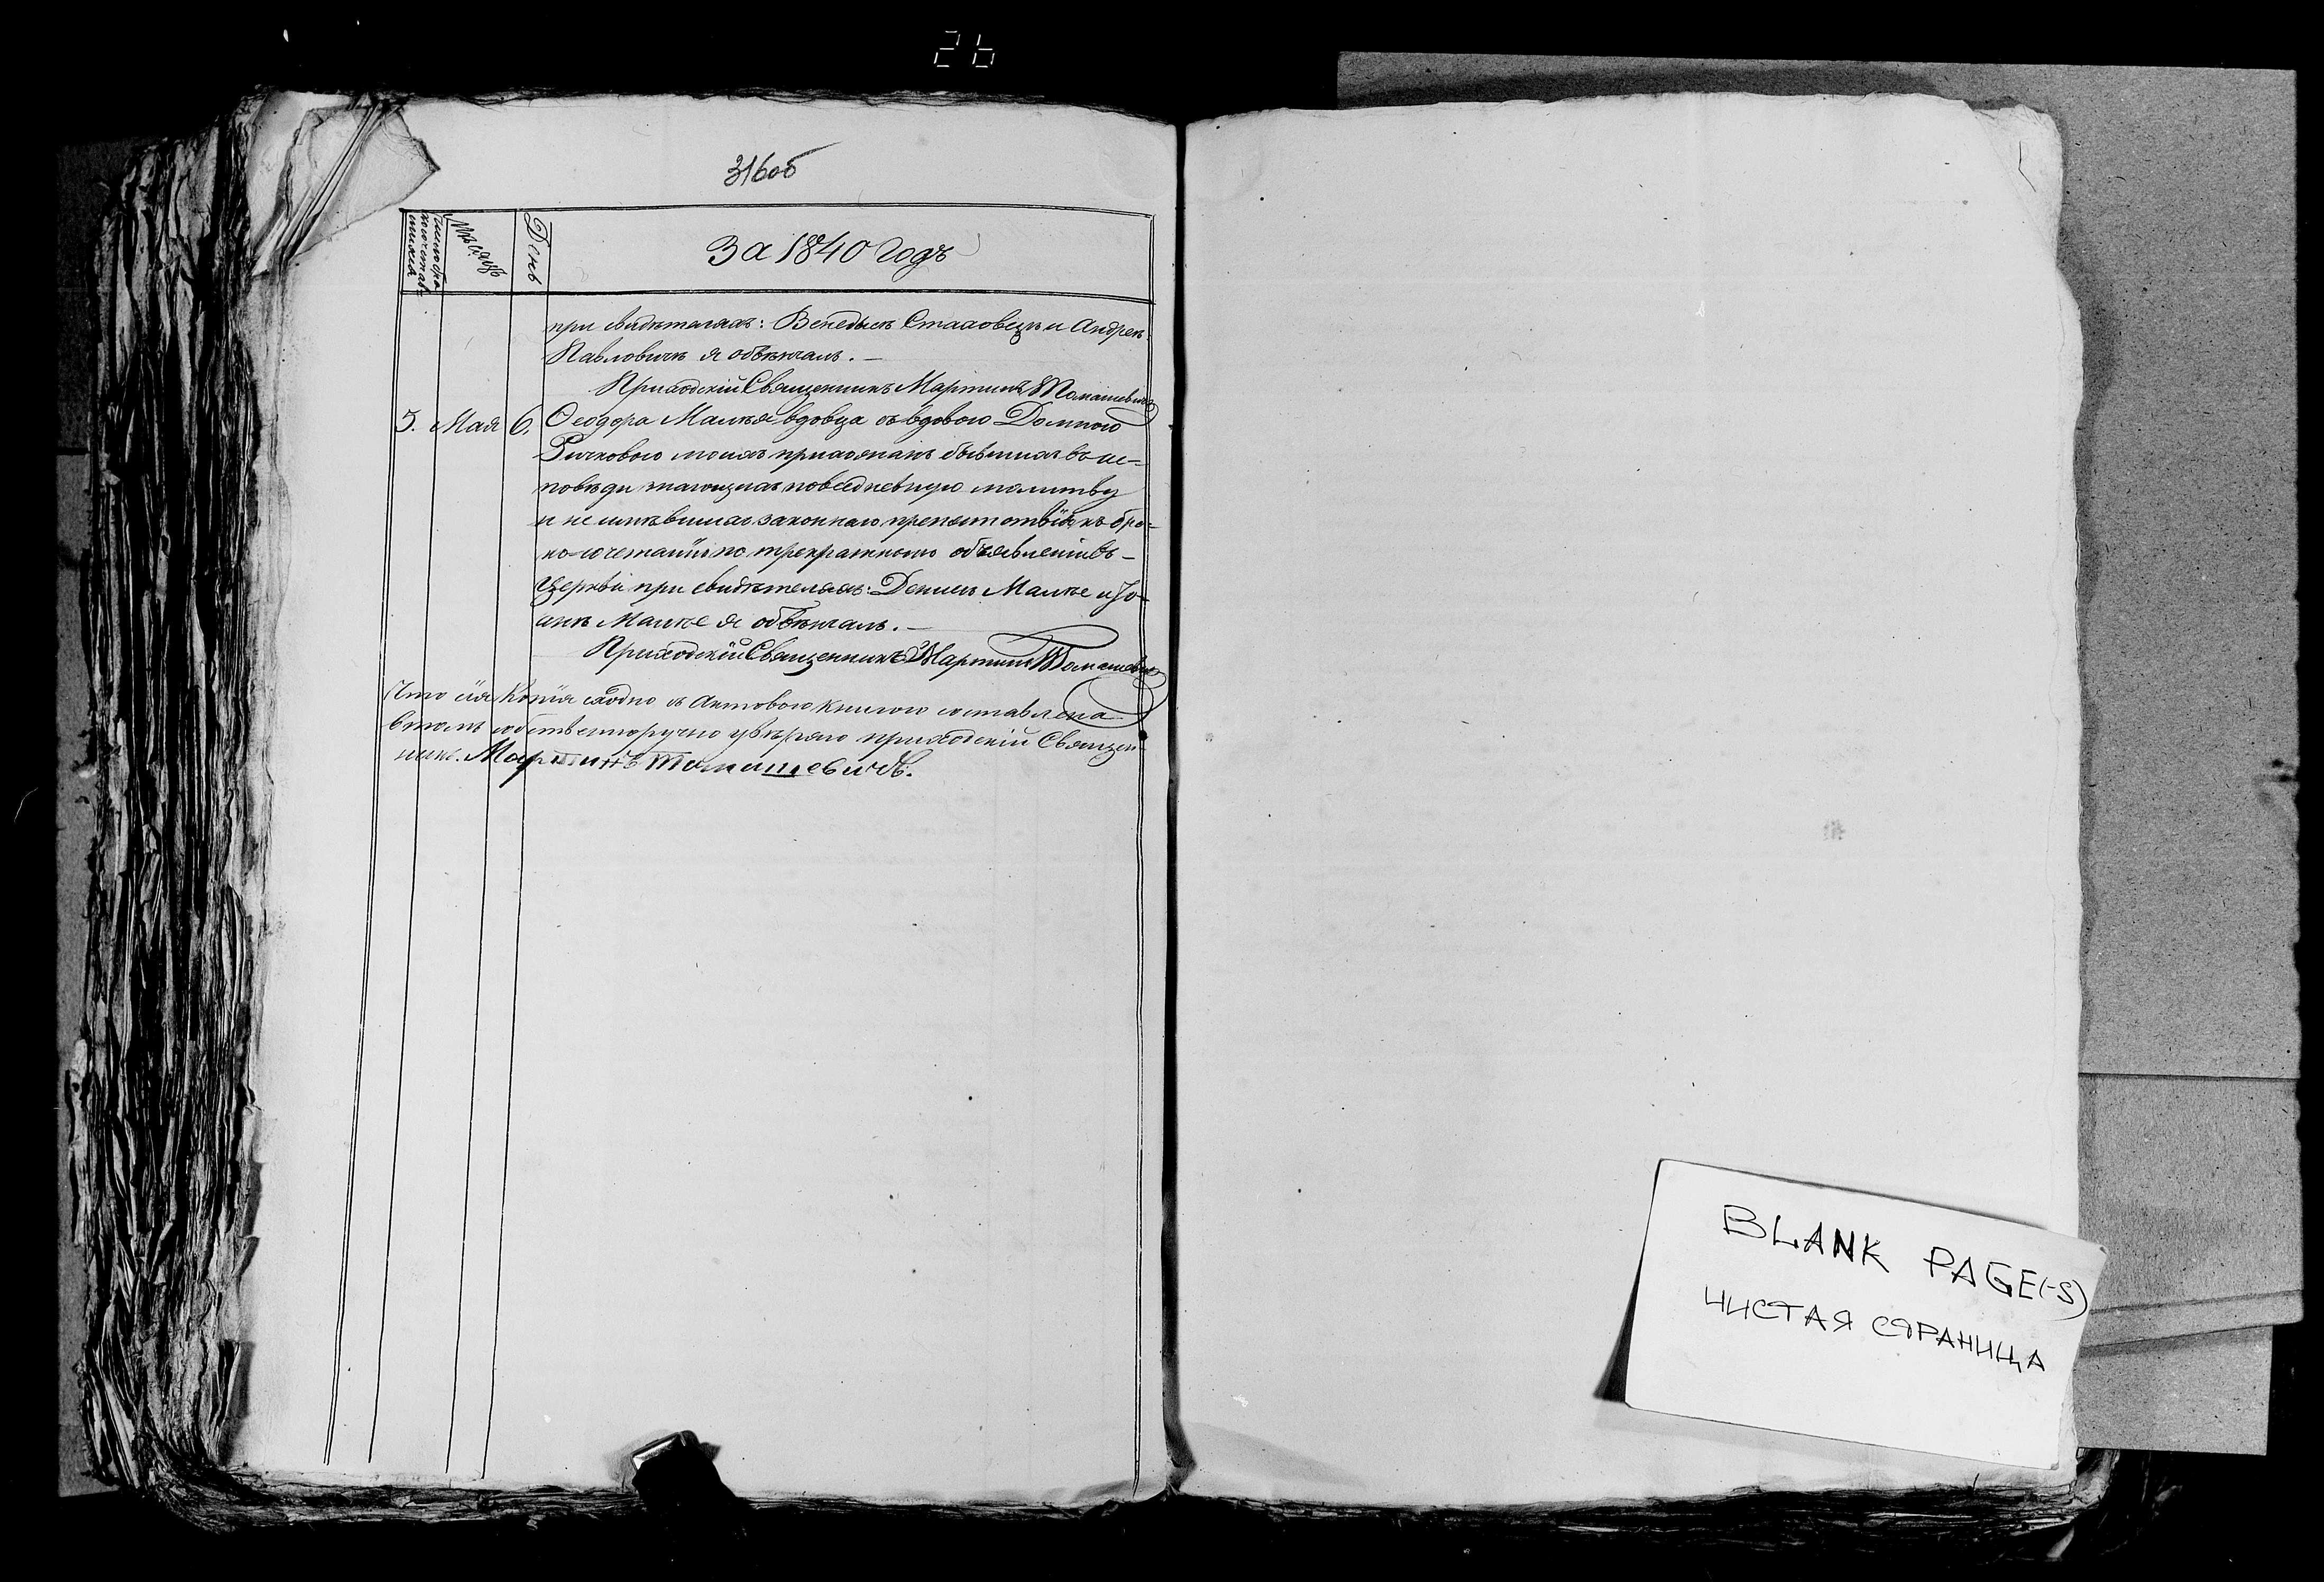 26
316об
Число бра-
косочетав-
шихся
Мѣсяцъ
День
За 1840 годъ
при свидѣтеляхъ: Венедыкъ и Андрей
Павловичъ я обвѣнчалъ. —
Приходскій Священникъ Мартинъ Томашевичъ
5. Мая 6. Ѳеодора Малѣя вдовца съ вдовою Домною
моихъ прихожанъ бывшихъ въ ис-
повѣди знающихъ повседневную молитву
и не имѣвшихъ законнаго препятствія къ бра-
ко-сочетанію по трекратномъ объявленіи въ —
Церкви при свидѣтеляхъ: Денисъ Малѣе и Іо-
анъ Малѣе я обвѣнчалъ. —
Приходскій Священникъ Мартинъ Томашевичъ
Что сія Копія сходно съ Актовою книгою составлена
втомъ собственноручно увѣряю приходскій Священ-
никъ. Мартинъ Томашевичъ.
BLANK PAGE(-S)
ЧИСТАЯ СТРАНИЦА